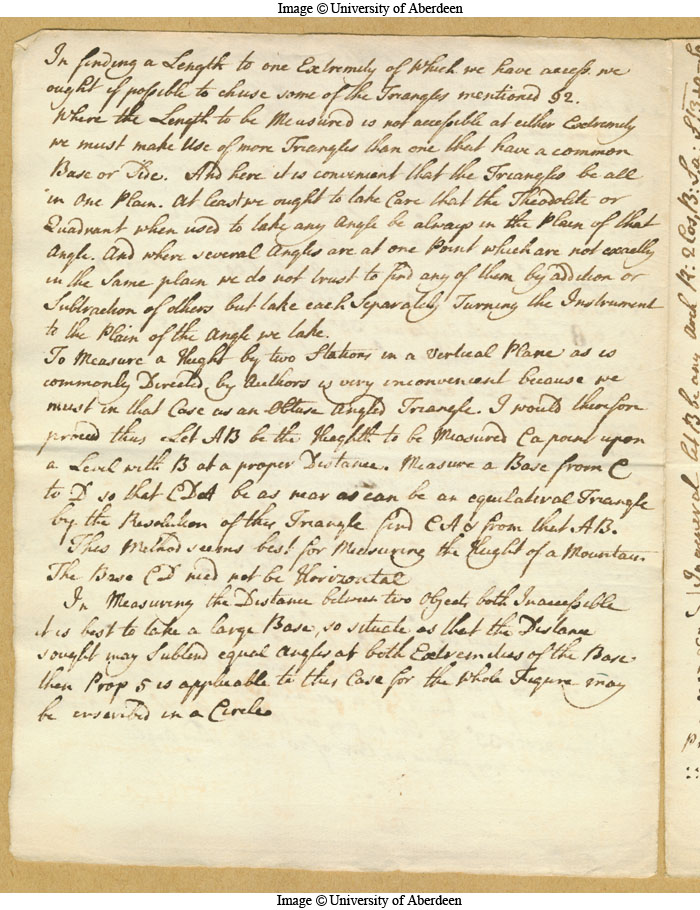 Image © University of Aberdeen
In finding a Length to one Extremity of which we have access. we
ought if possible to chuse some of the Triangles mentioned §2.
Where the Length to be Measured is not accessible at either Extremity
we must make Use of more Triangles than one that have a common
Base or Side. And here it is convenient that the Triangles be all
in One Plain. At least we ought to take Care that the Theodolite or
Quadrant when used to take any Angle be always in the Plain of that
Angle. And where several Angles are at one Point which are not exactly
in the Same plain we do not trust to find any of them by addition or
Subtraction of others but take each Separately Turning the Instrument
to the Plain of the Angle we take.
To Measure a Hught by two Stations in a Vertical Plane as is
commonly Directed by Authors is very inconvenient because we
must in that Case us an Obtuse Angled Triangle. I would therefore
proceed thus Let AB be the Heighth to be Measured C a point upon
a Level with B at a proper Distance. Measure a Base from C
to D so that CDA be as near as can be an equilateral Triangle
by the Resolution of this Triangle find CA & from that AB.
This Method seems best for Measuring the Hught of a Mountain.
The Base CD need not be Horizontal
In Measuring the Distance between two Objects both Inaccessible
it is best to take a large Base, so situate as that the Distance
sought may Subtend equal Angles at both Extremities of the Base.
then Prop 5 is applicable to this Case for the whole Figure may
be inscribed in a Circle
In general let B be any arch
Image © University of Aberdeen